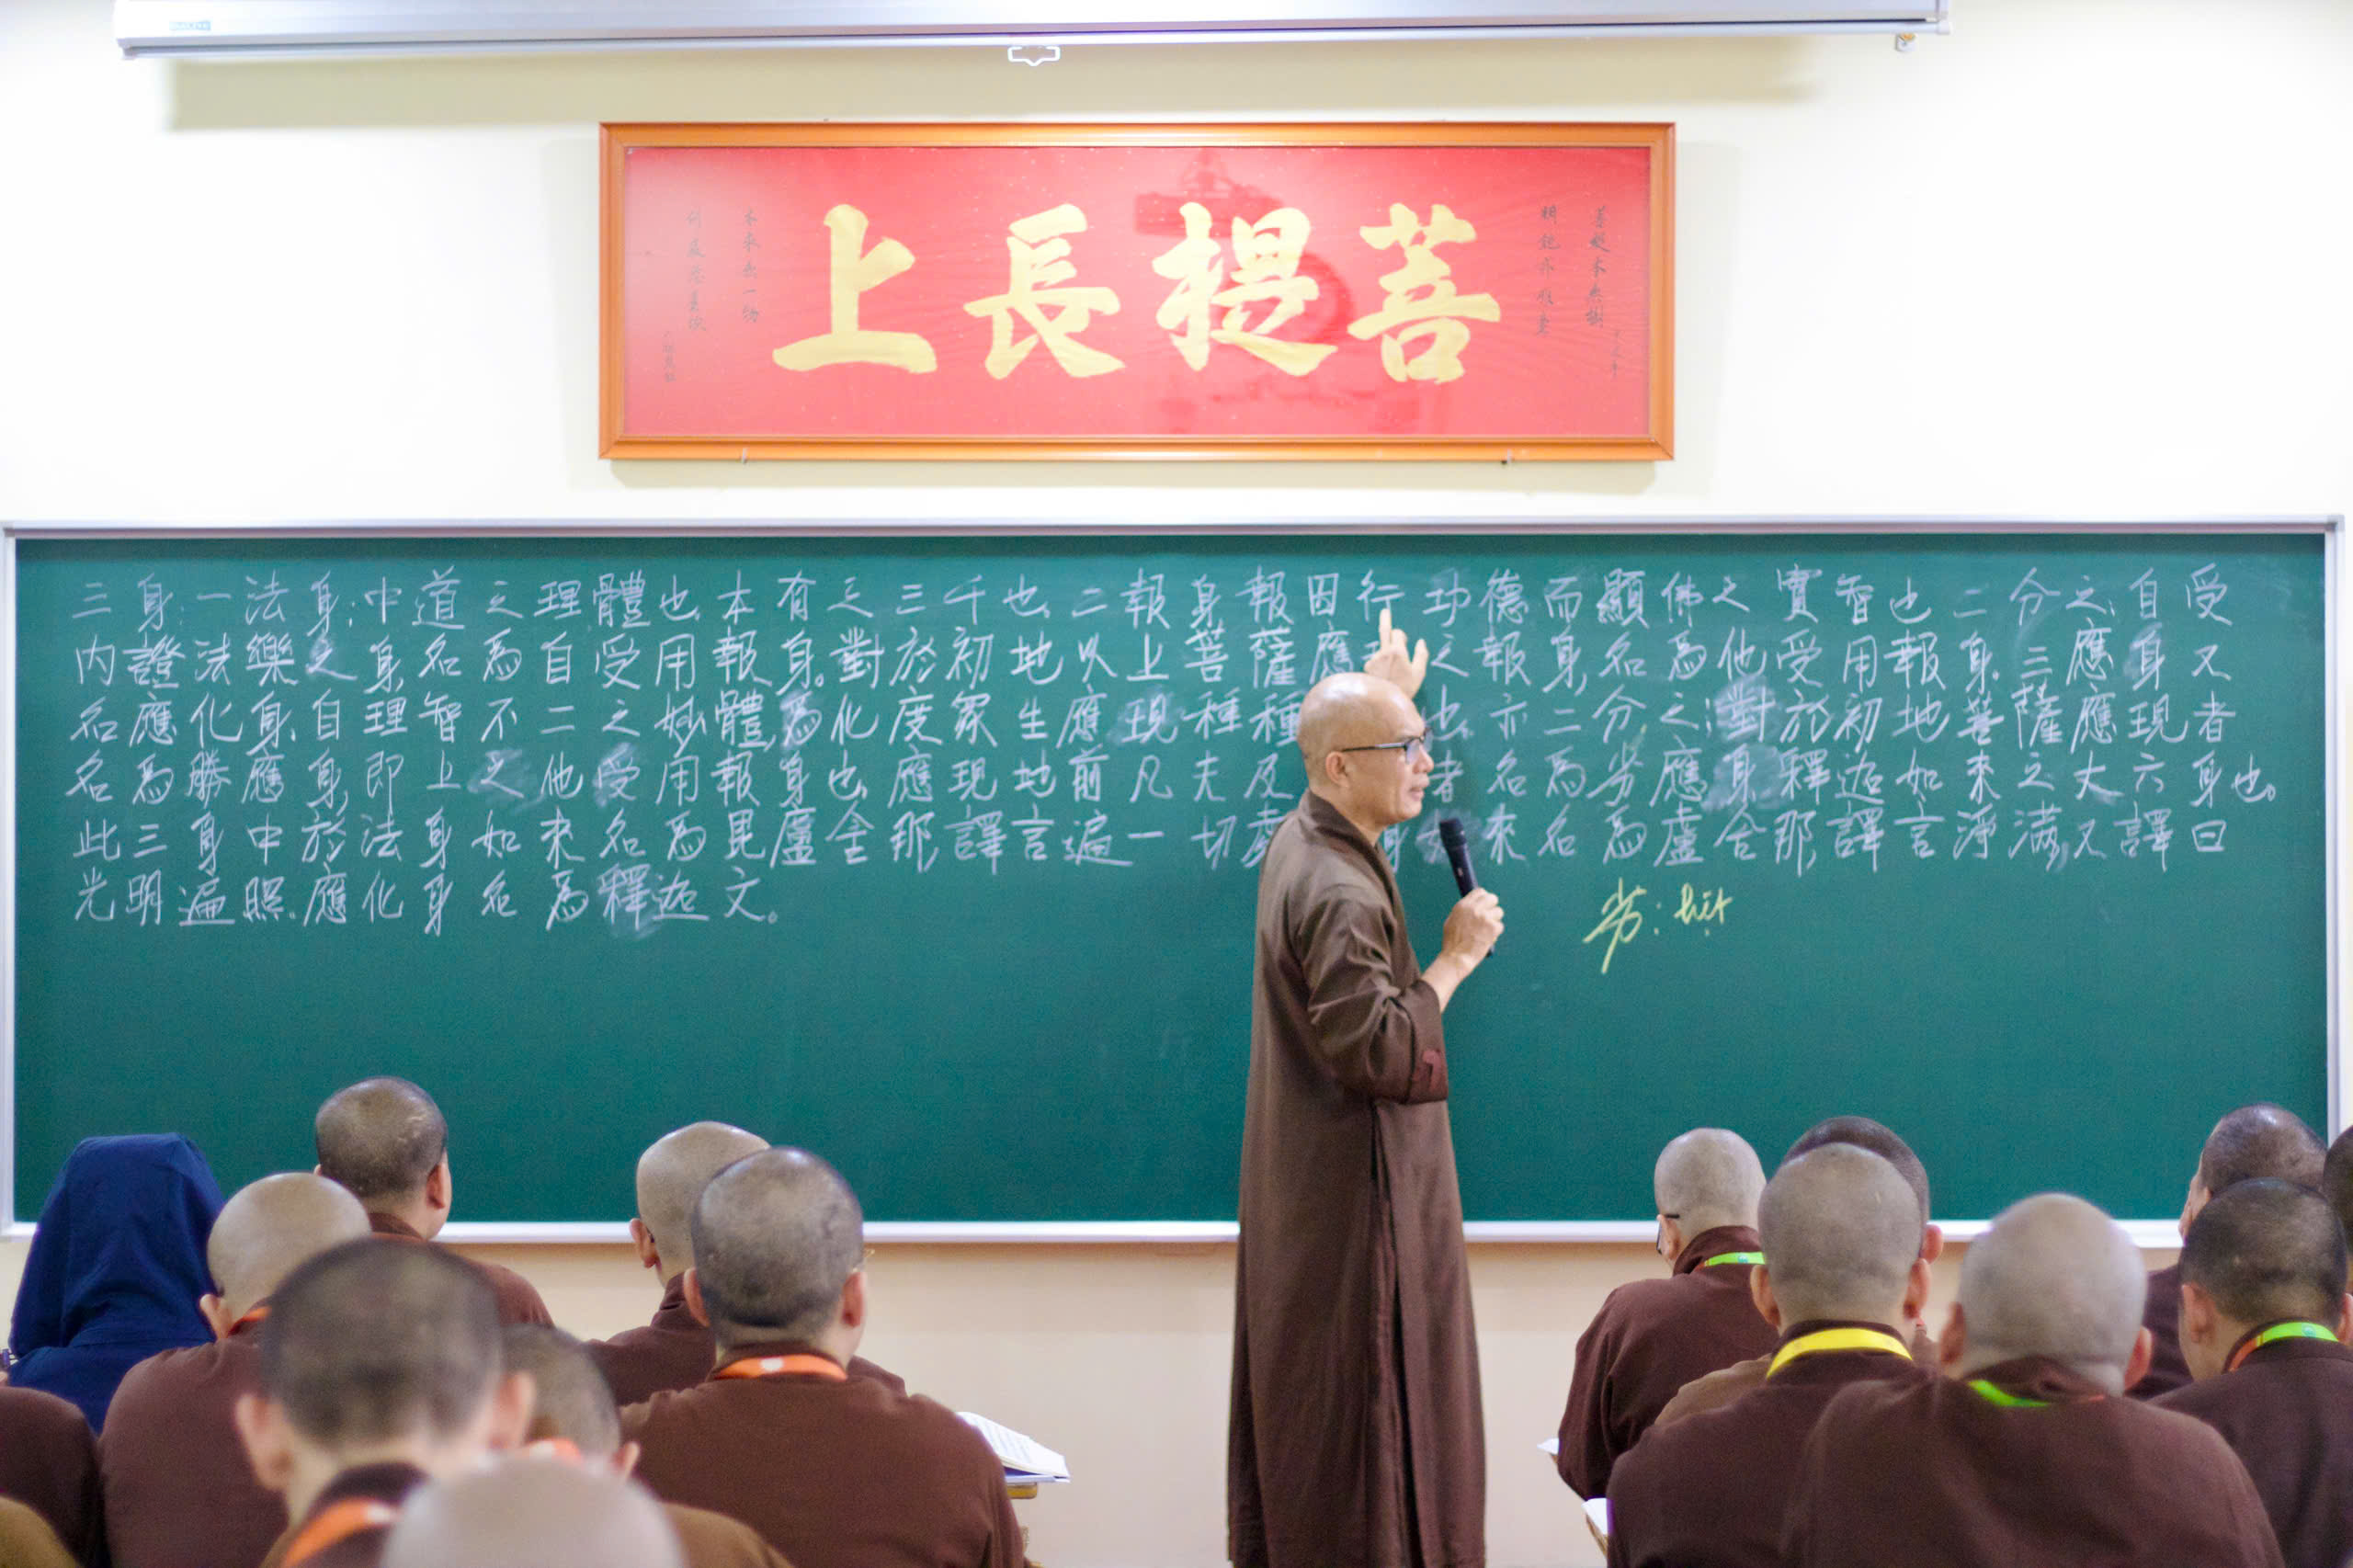 菩提長上
菩提本無樹
明鏡亦非臺
本來無一物
何處惹塵埃
三身:一法身:中道之理體也本有之三千也二報身報因行功德而顯佛之實智也二分之自受
內證法樂之身名為自受用報身。對於初地以上菩薩應 之報身,名為他受用報身三應身又
名應化身自理智不二之妙體,為化度眾生應現種種 也亦二分之:對於初地菩薩應現者
名為勝應身,即上之他受用報身也應現地前凡夫及 者名為劣應身釋迦如來之丈六身也。
此三身中於法身如來名為毘盧舍那,譯言遍一切處 來名為盧舍那,譯言淨滿,又譯曰
光明遍照.應化身名為釋迦文。
劣: liệt